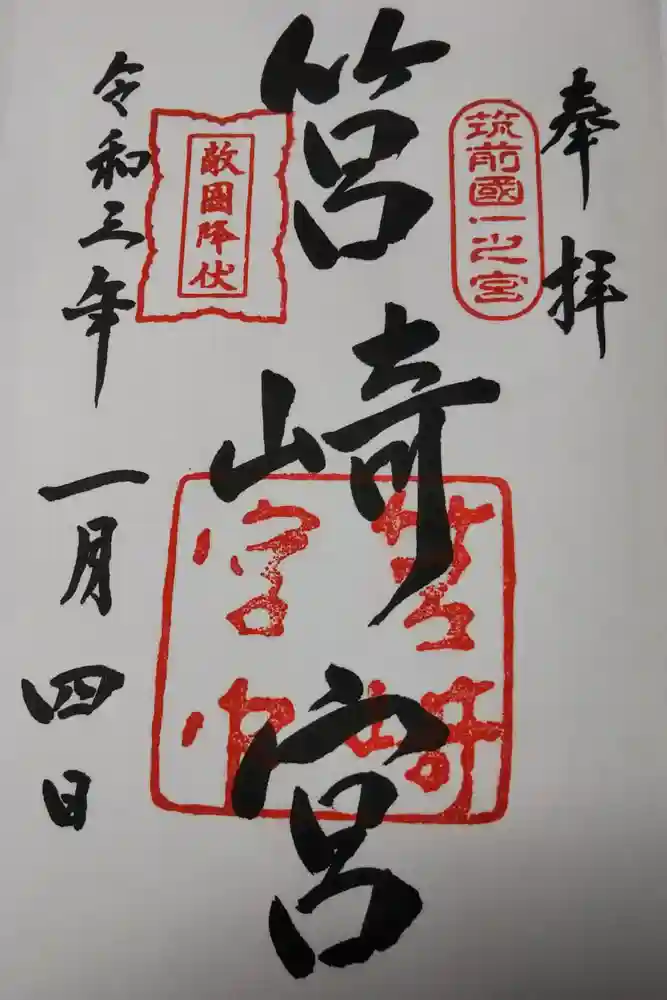 奉拝
筑前國一之宮
筥崎宮
敵國降伏
令和三年
一月四日